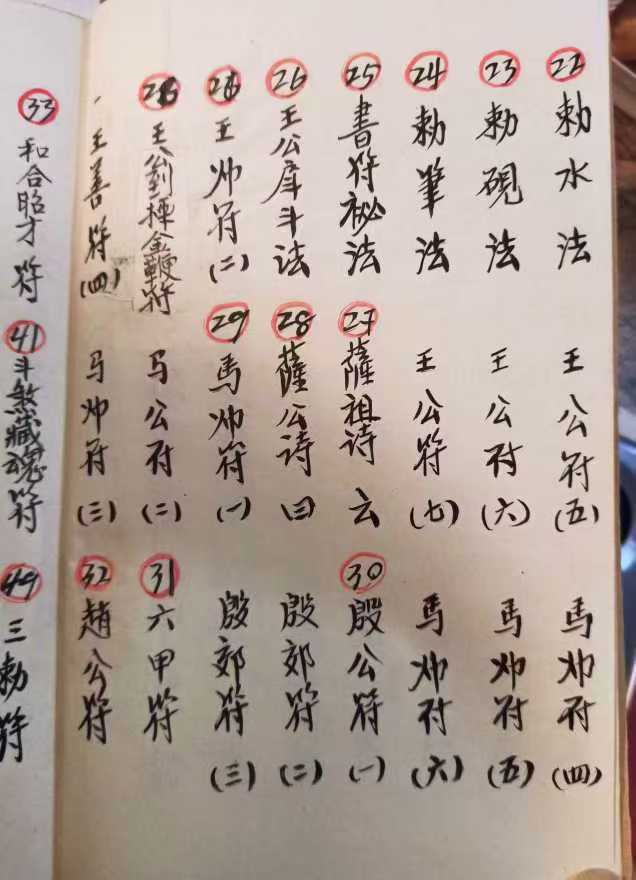 22 勅水法
23 勅硯法
24 勅筆法
25 書符祕法
26 王公庠斗法
28 王帅符(二)
28 王公劉極金鞭符
王善符(四)
王公符(五)
王公符(六)
王公符(七)
27 薩祖诗云
28 薩公诗(四)
29 馬帅符(一)
马公符(二)
马帅符(三)
馬帅符(四)
馬帅符(五)
馬帅符(六)
30 殷公符(一)
殷郊符(二)
殷郊符(三)
31 六甲符
32 趙公符
33 和合昭才符
41 斗煞藏魂符
49 三勅符